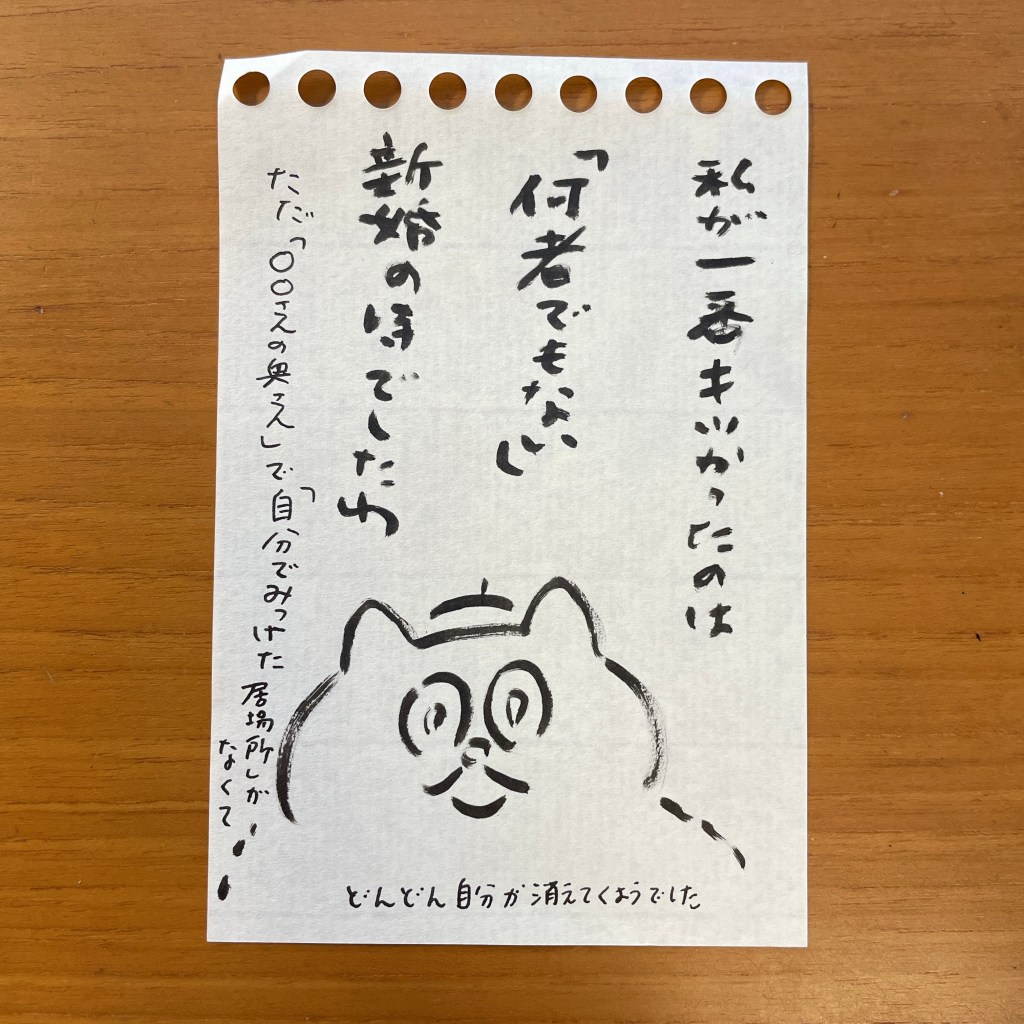 私が一番キツかったのは
「何者でもない」
新婚の時でしたわ
ただ「〇〇さんの奥さん」で「自分でみつけた居場所」が
なくて…
どんどん自分が消えてくようでした